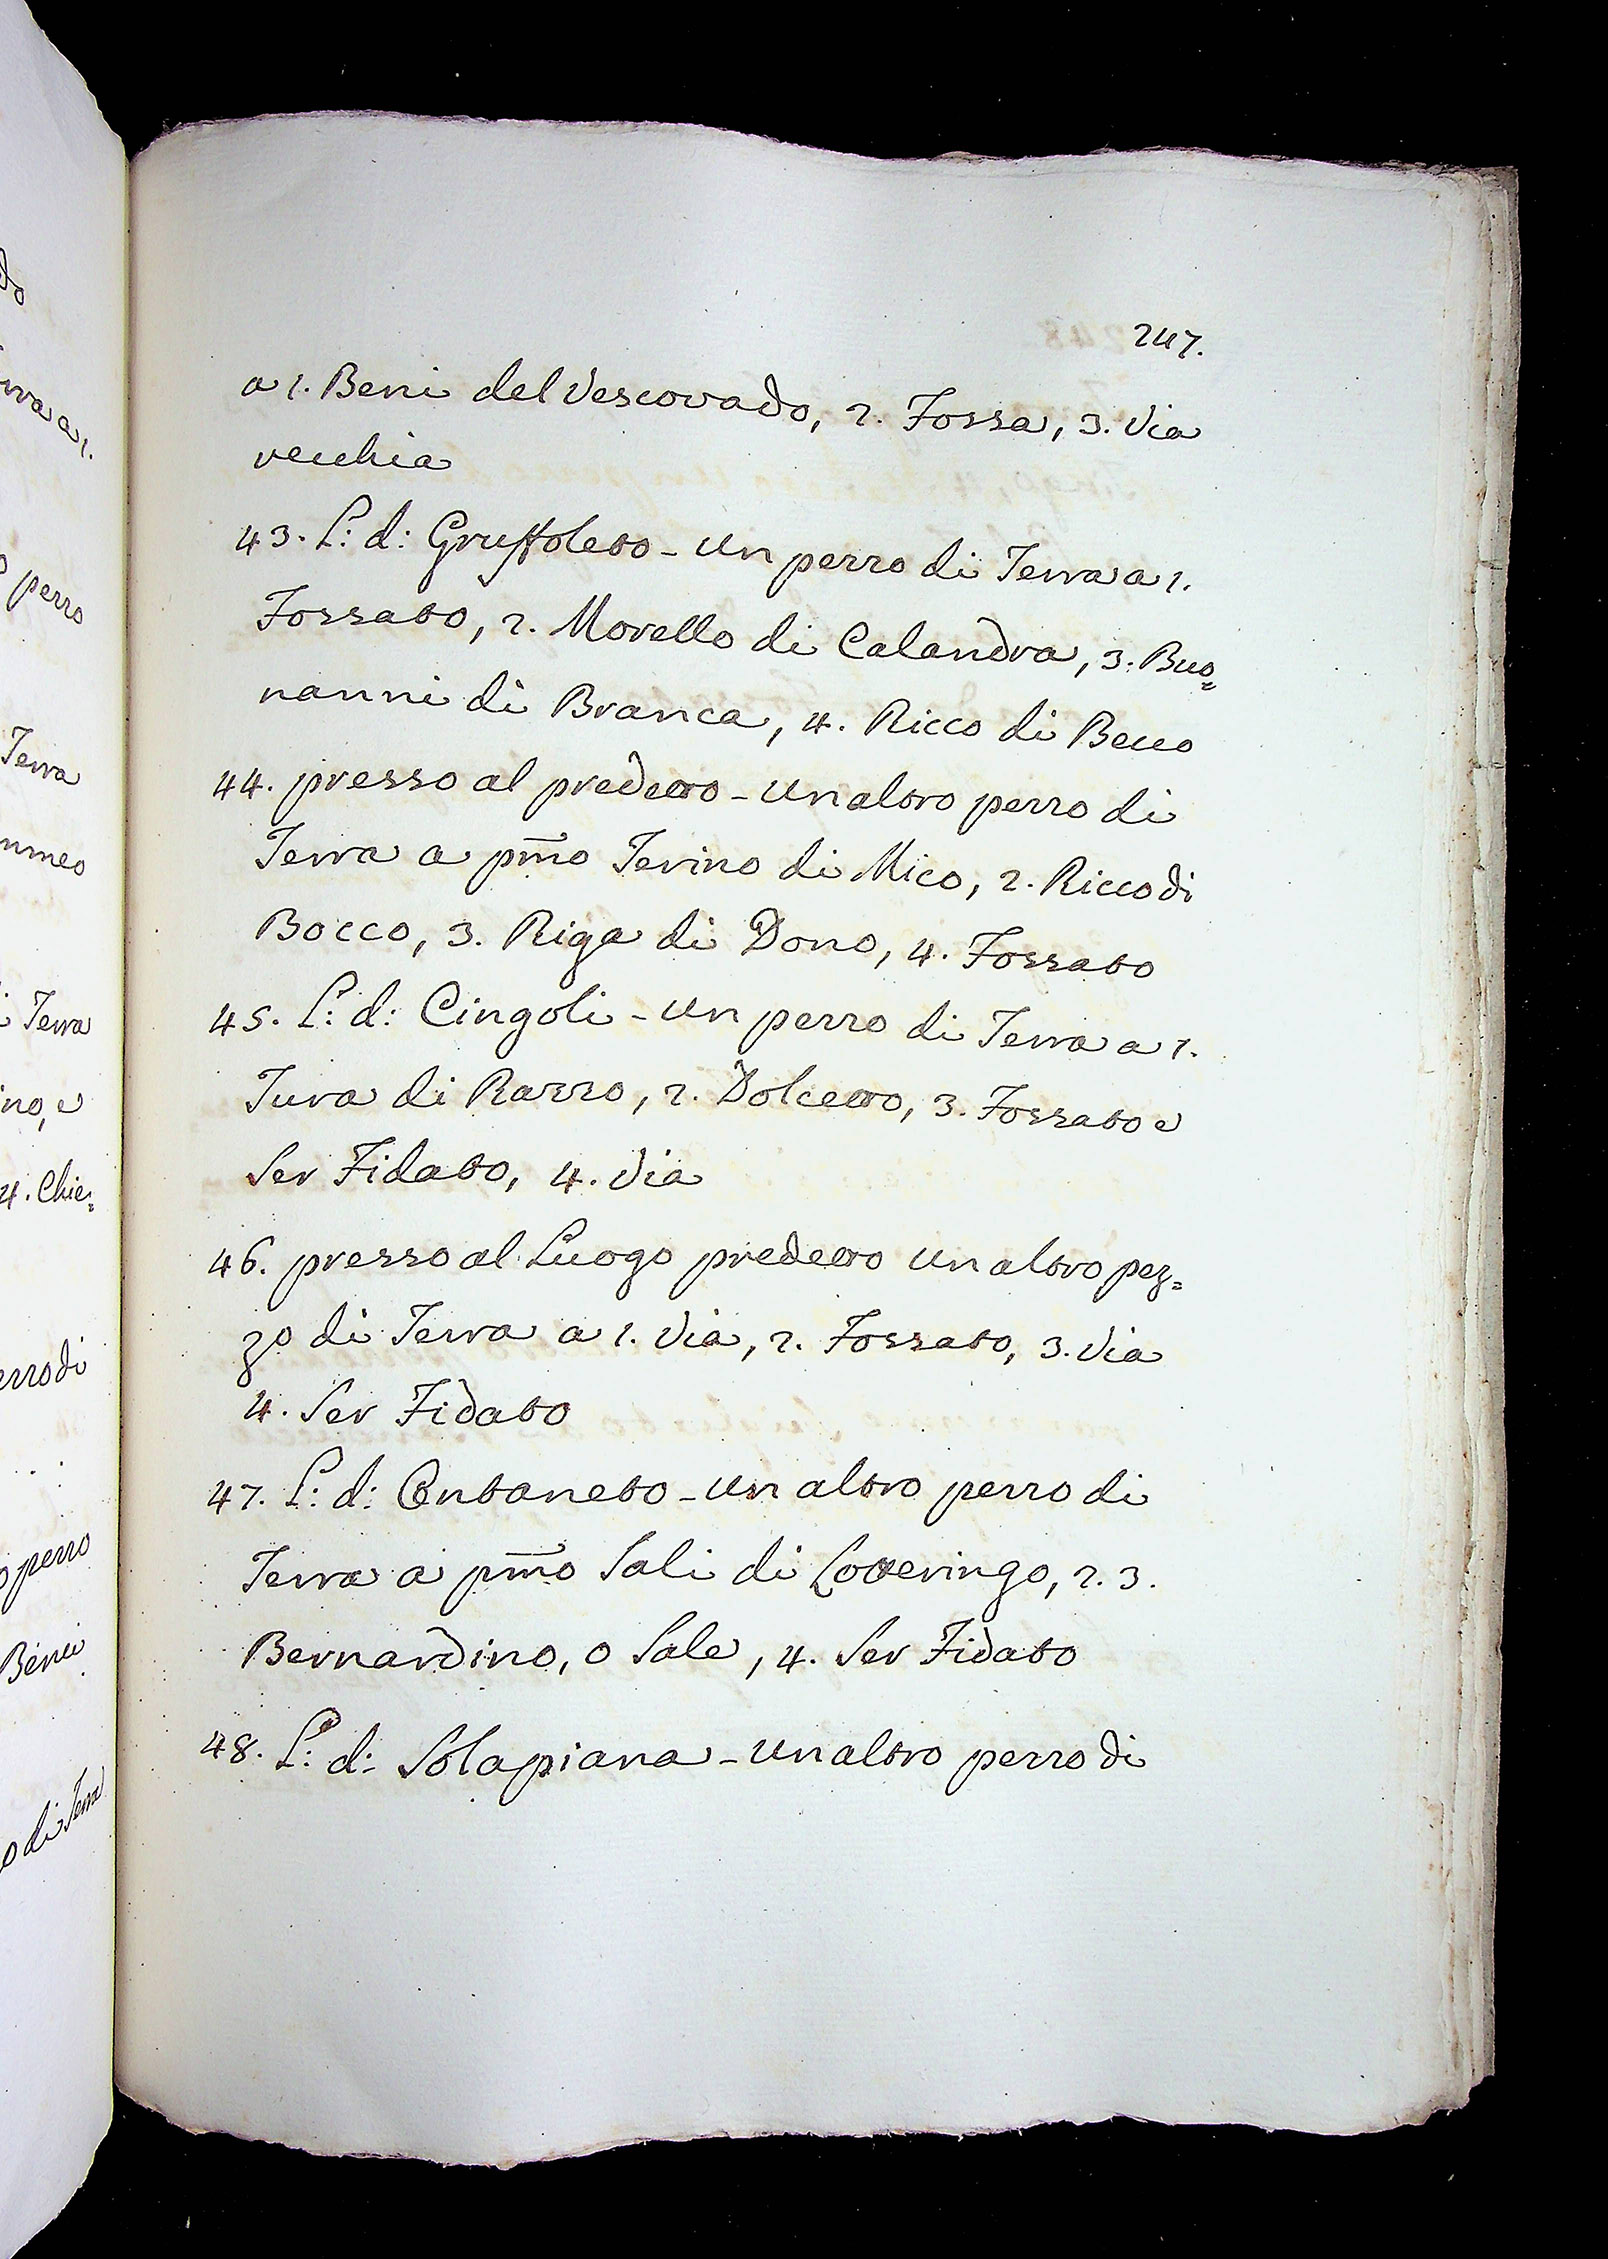 247.
a 1. Beni del Vescovado, 2. Fossa, 3. Via
vecchia
43. L: d: Gruffoleto - Un pezzo di Terra a 1.
Fossato, 2. Morello di Calandra, 3. Buo=
nanni di Branca, 4. Ricco di Becco
44. presso al predetto - Un altro pezzo di
Terra a pmo Terino di Mico, 2. Ricco di
Bocco, 3. Riga di Dono, 4. Fossato
45. L: d: Cingoli - Un pezzo di Terra a 1.
Tura di Razzo, 2. Dolcetto, 3. Fossato e
Ser Fidato, 4. Via
46. presso al Luogo predetto Un altro pez=
zo di Terra a 1. Via, 2. Fossato, 3. Via
4. Ser Fidato
47. L: d: Contaneto - Un altro pezzo di
Terra a pmo Sali di Lotteringo, 2. 3.
Bernardino, o Sale, 4. Ser Fidato
48. L: d: Solapiana - Un altro pezzo di